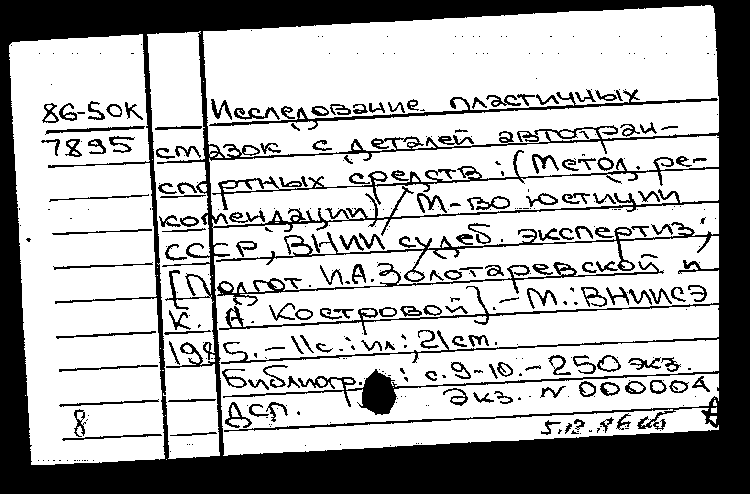 86-50К Исследование пластичных
7895 смазок с деталей автотран-
спортных средств : (Метод. ре-
комендации) / М-во юстиции
СССР, ВНИИ судеб. экспертиз ;
[Подгот. И.А. Золотаревской и
К. А. Костровой]. - М. : ВНИИСЭ
1985. - 11 с. : ил ; 21 см.
Библиогр. : с. 9-10. - 250 экз.
ДСП. Экз. N 000004.
8 5.12.86